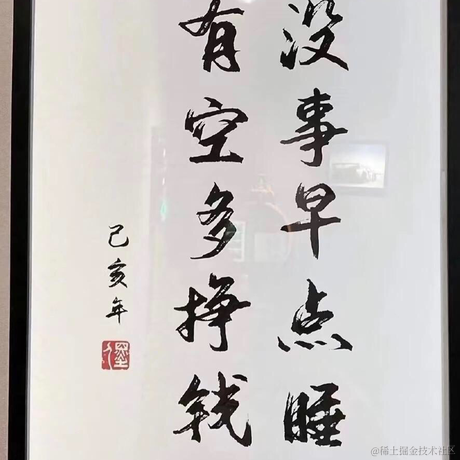 没事早点睡
有空多挣钱
己亥年
@稀土掘金技术社区